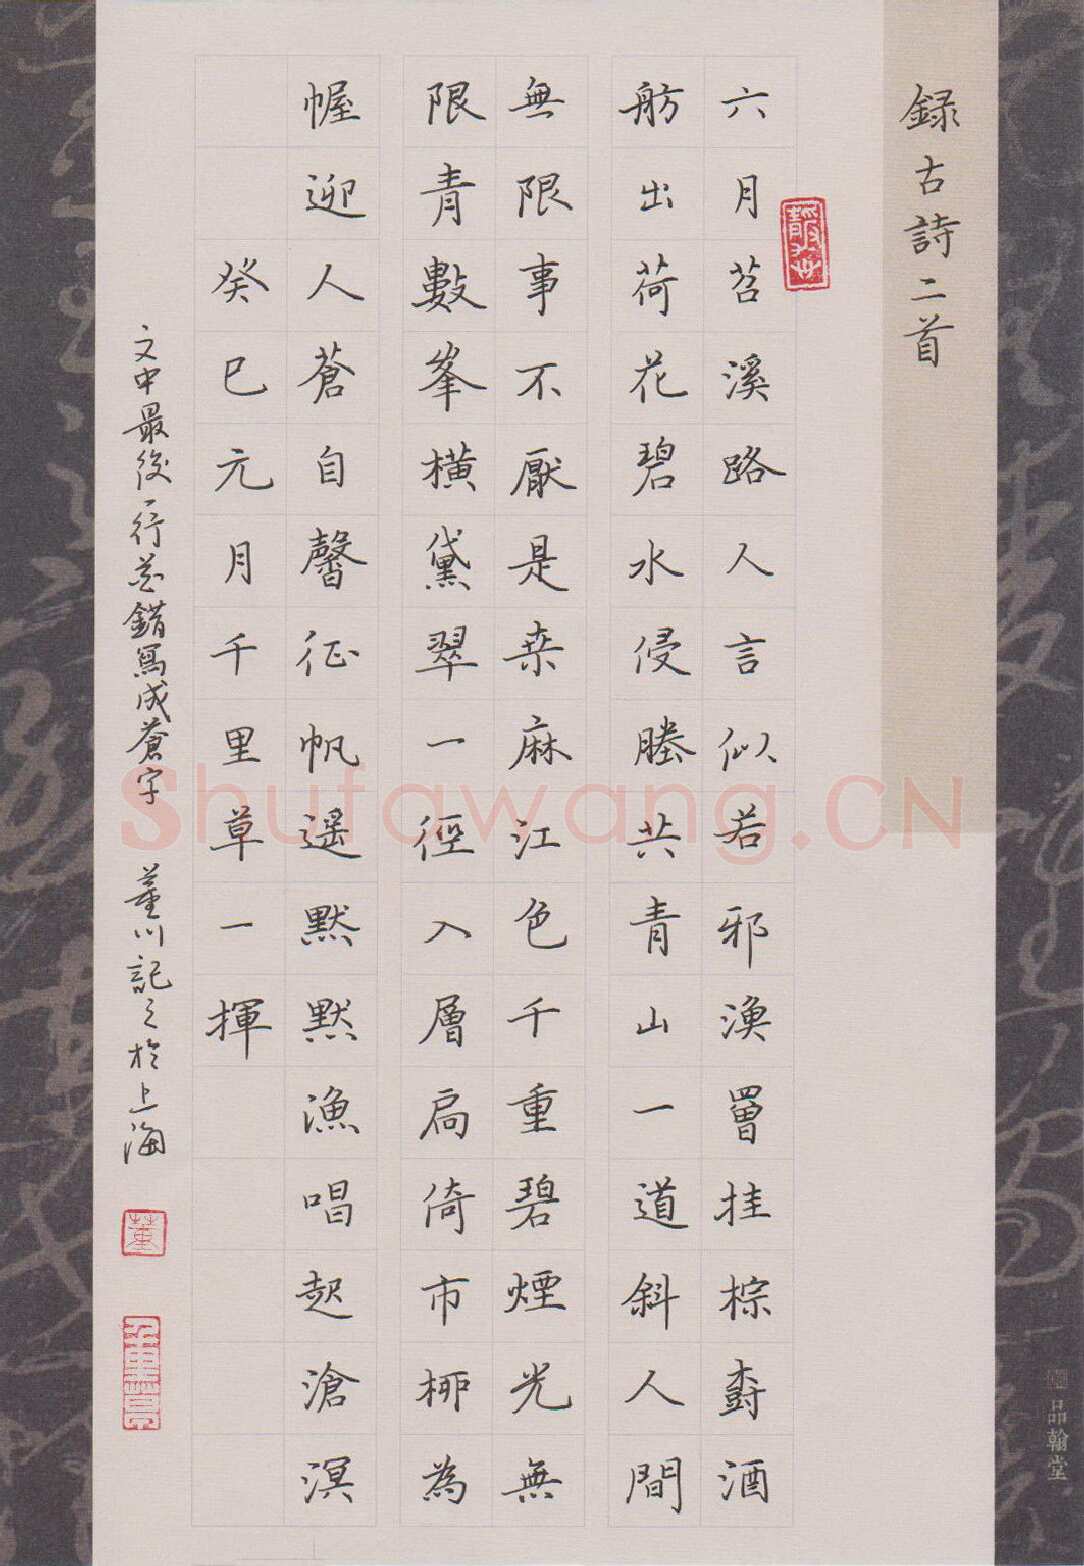 録古詩二首
六月苕溪路人言似若邪漁罾挂棕壔酒
舫出荷花碧水侵塍共青山一道斜人間
無限事不厭是桒麻江色千重碧煙光無
限青數峯橫黛翠一徑入層扃倚市桺為
幄迎人蒼自馨征帆遥默默漁唱起滄溟
癸巳元月千里草一揮
文中最後一行花錯寫成蒼字 董川記之於上海
董
品翰堂
Shufawang.CN